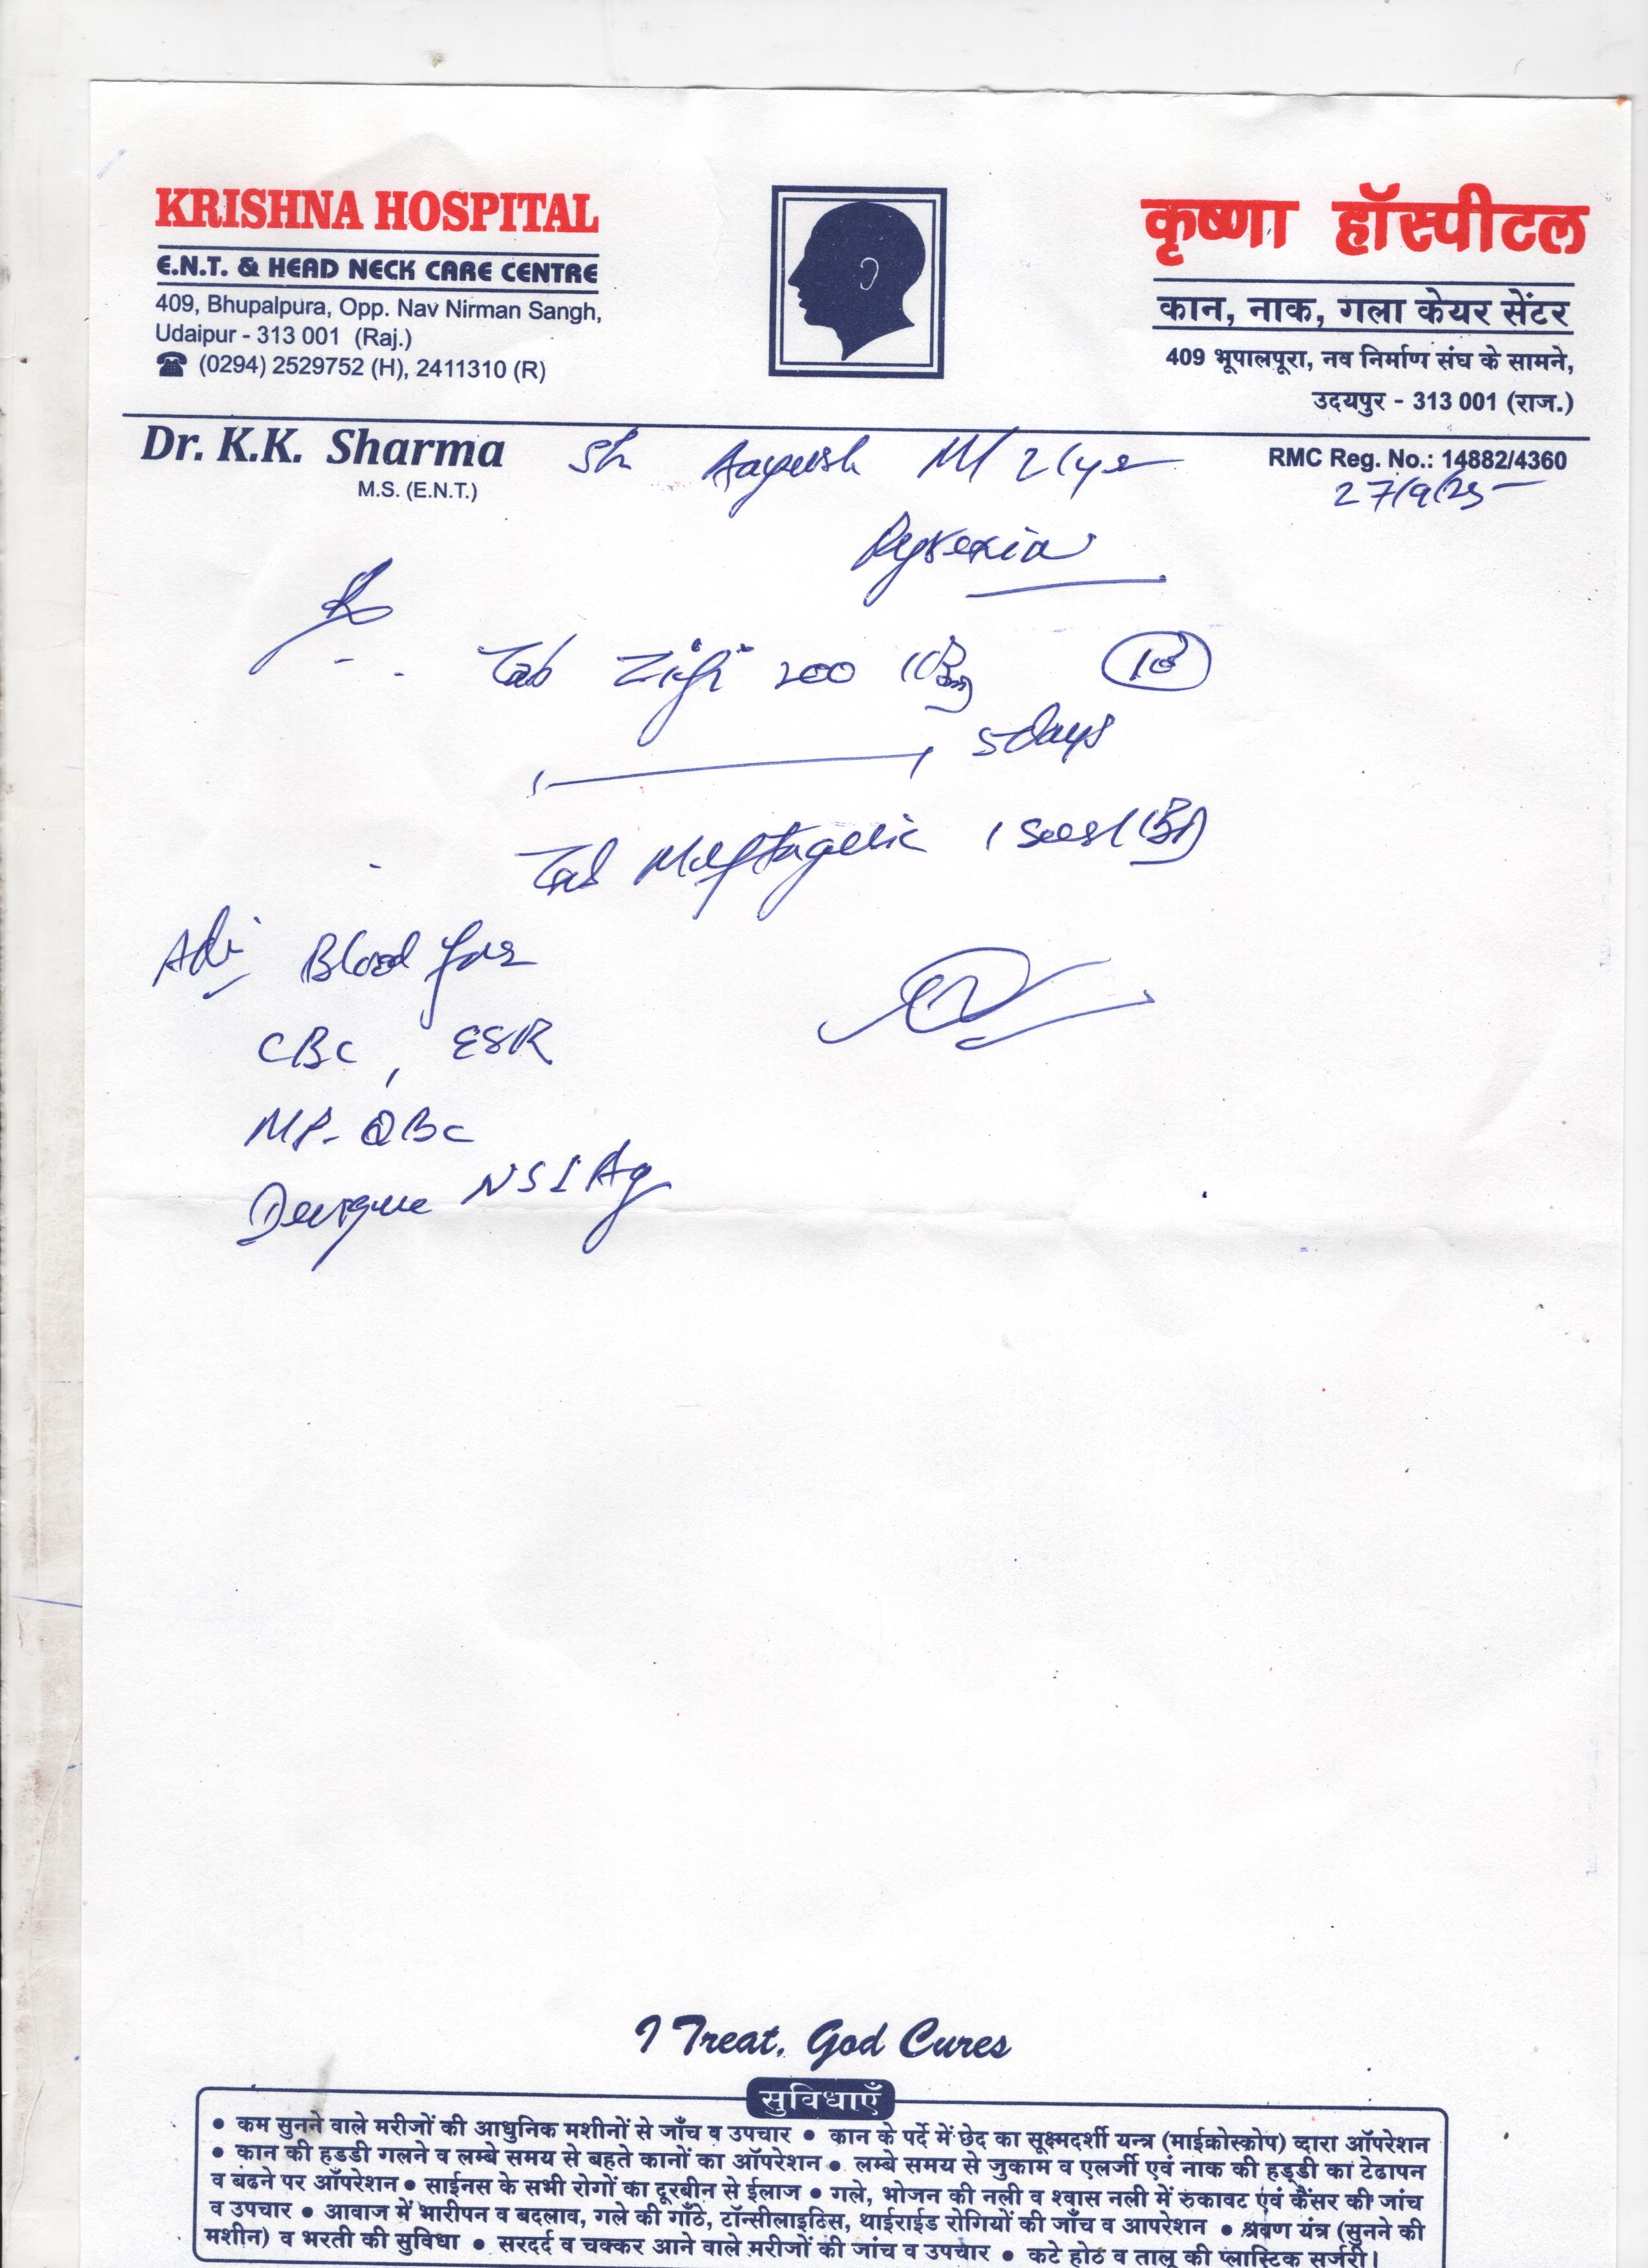 KRISHNA HOSPITAL
E.N.T. & HEAD NECK CARE CENTRE
409, Bhupalpura, Opp. Nav Nirman Sangh,
Udaipur - 313 001 (Raj.)
☎ (0294) 2529752 (H), 2411310 (R)
कृष्णा हॉस्पीटल
कान, नाक, गला केयर सेंटर
409 भूपालपूरा, नव निर्माण संघ के सामने,
उदयपुर - 313 001 (राज.)
Dr. K.K. Sharma
M.S. (E.N.T.)
Sh Aayush M/21yr
RMC Reg. No.: 14882/4360
27/9/25
Pyrexia
Tab Zifi 200
5 days
Tab Meftagesic 1
Adv Blood for
CBC, ESR
MP- QBC
Dengue NS1 Ag
I Treat, God Cures
सुविधाएँ
• कम सुनने वाले मरीजों की आधुनिक मशीनों से जाँच व उपचार • कान के पर्दे में छेद का सूक्ष्मदर्शी यन्त्र (माईक्रोस्कोप) व्दारा ऑपरेशन
• कान की हडडी गलने व लम्बे समय से बहते कानों का ऑपरेशन • लम्बे समय से जुकाम व एलर्जी एवं नाक की हड्डी का टेढापन
व बढने पर ऑपरेशन • साईनस के सभी रोगों का दूरबीन से ईलाज • गले, भोजन की नली व श्वास नली में रुकावट एवं कैंसर की जांच
व उपचार • आवाज में भारीपन व बदलाव, गले की गाँठे, टॉन्सीलाइटिस, थाईराईड रोगियों की जाँच व आपरेशन • श्रवण यंत्र (सुनने की
मशीन) व भरती की सुविधा • सरदर्द व चक्कर आने वाले मरीजों की जांच व उपचार • कटे होठ व तालू की प्लास्टिक सर्जरी।